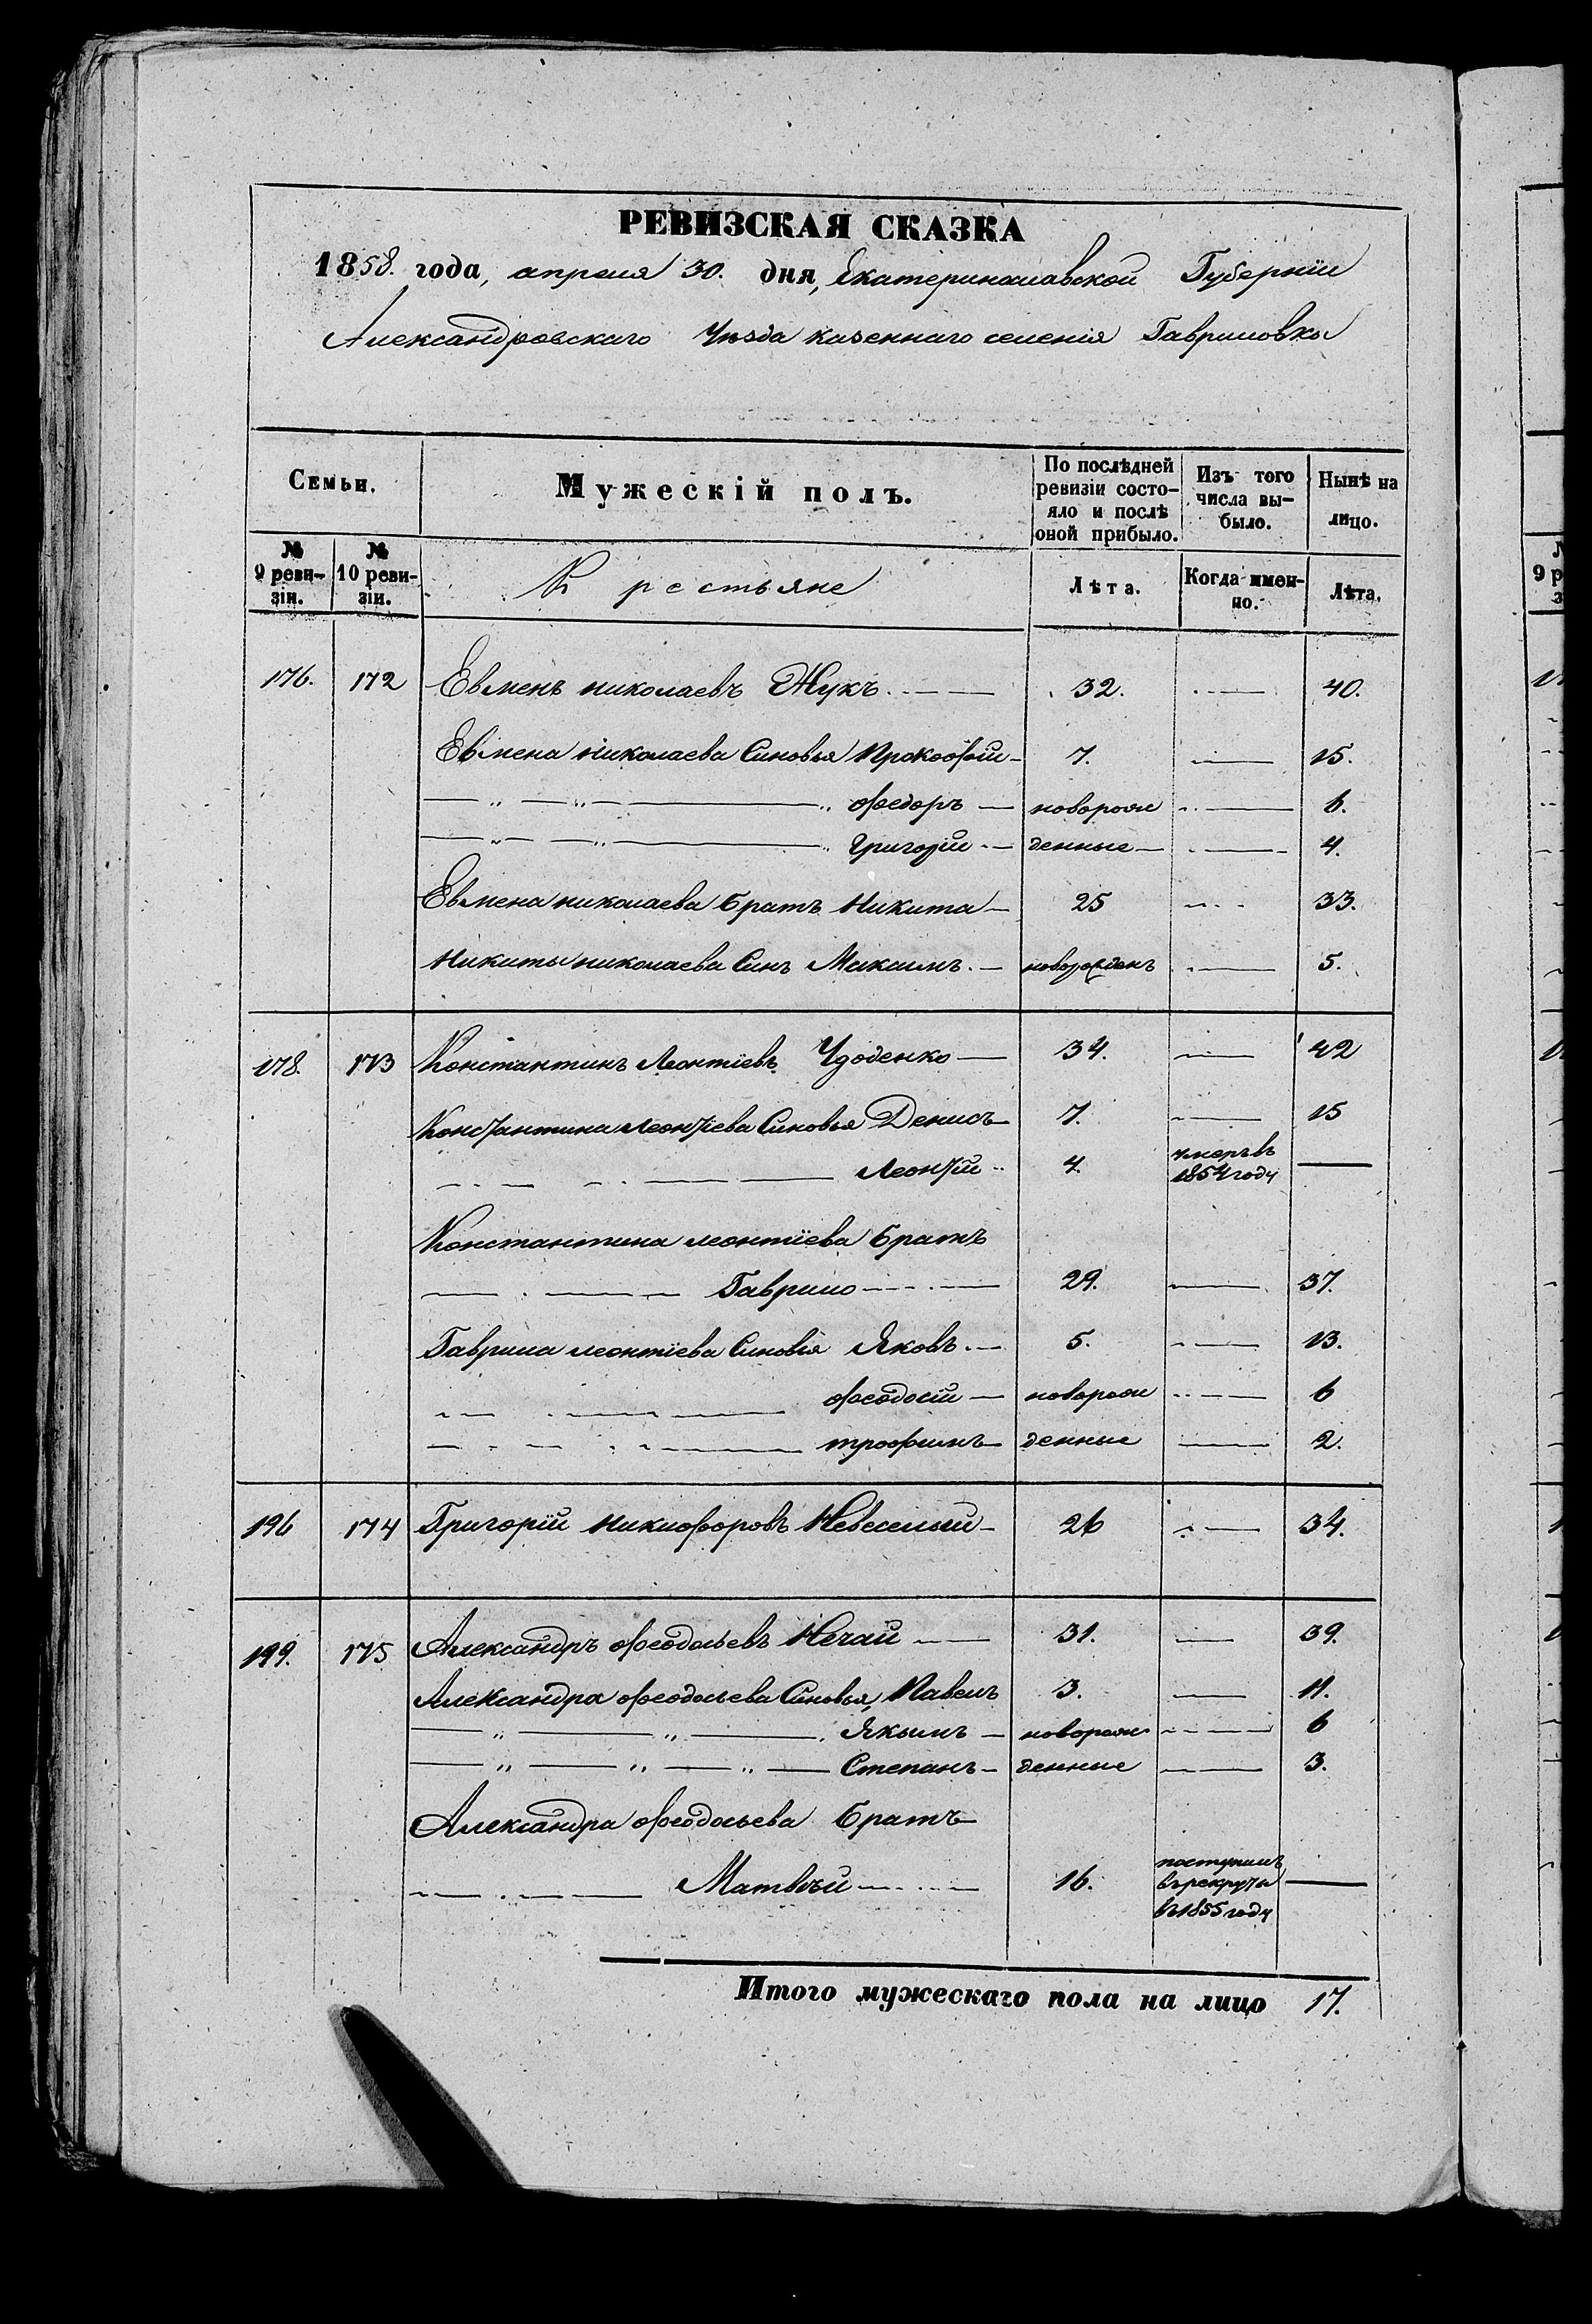 РЕВИЗСКАЯ СКАЗКА
1858. года, апреля 30. дня, Екатеринославской Губерніи
Александровскаго Уезда казеннаго селенія Гавриловки
Семьи. Мужескій полъ. По послѣдней ревизіи состо- Изъ того числа вы- Нынѣ на
яло и послѣ оной прибыло. было. лицо.
№ 9 реви- зіи. № 10 реви- зіи. Крестьяне Лѣта. Когда имен- но. Лѣта.
176. 172 Евменъ николаевъ Жукъ. 32. 40.
Евмена николаева Синовья Прокофій 7. 15.
" " " федоръ новорож 6.
" " " Григорій денные 4.
Евмена николаева братъ Никита 25 33.
Никиты николаева Синъ Максимъ. новорожденъ 5.
178. 173 Константинъ Леонтіевъ Удоденко 34. 42
Константина Леонтіева Синовья Денисъ 7. 15
Леонтій 4. умеръ въ 1854 году
Константина леонтіева братъ
Гаврило 29. 37.
Гаврила леонтіева Синовія Яковъ. 5. 13.
феодосій новорож 6
трофимъ денные 2.
196 174 Григорій никифоровъ Невеселый 26 34.
199. 175 Александръ феодосьевъ Нечай 31. 39.
Александра феодосьева Синовья, Павелъ 3. 11.
" " Якымъ новорож 6
" " " Степанъ денные 3.
Александра феодосьева братъ
Матвѣй 16. поступилъ въ рекруты въ 1855 году
Итого мужескаго пола на лицо 17.
№
9 р
з